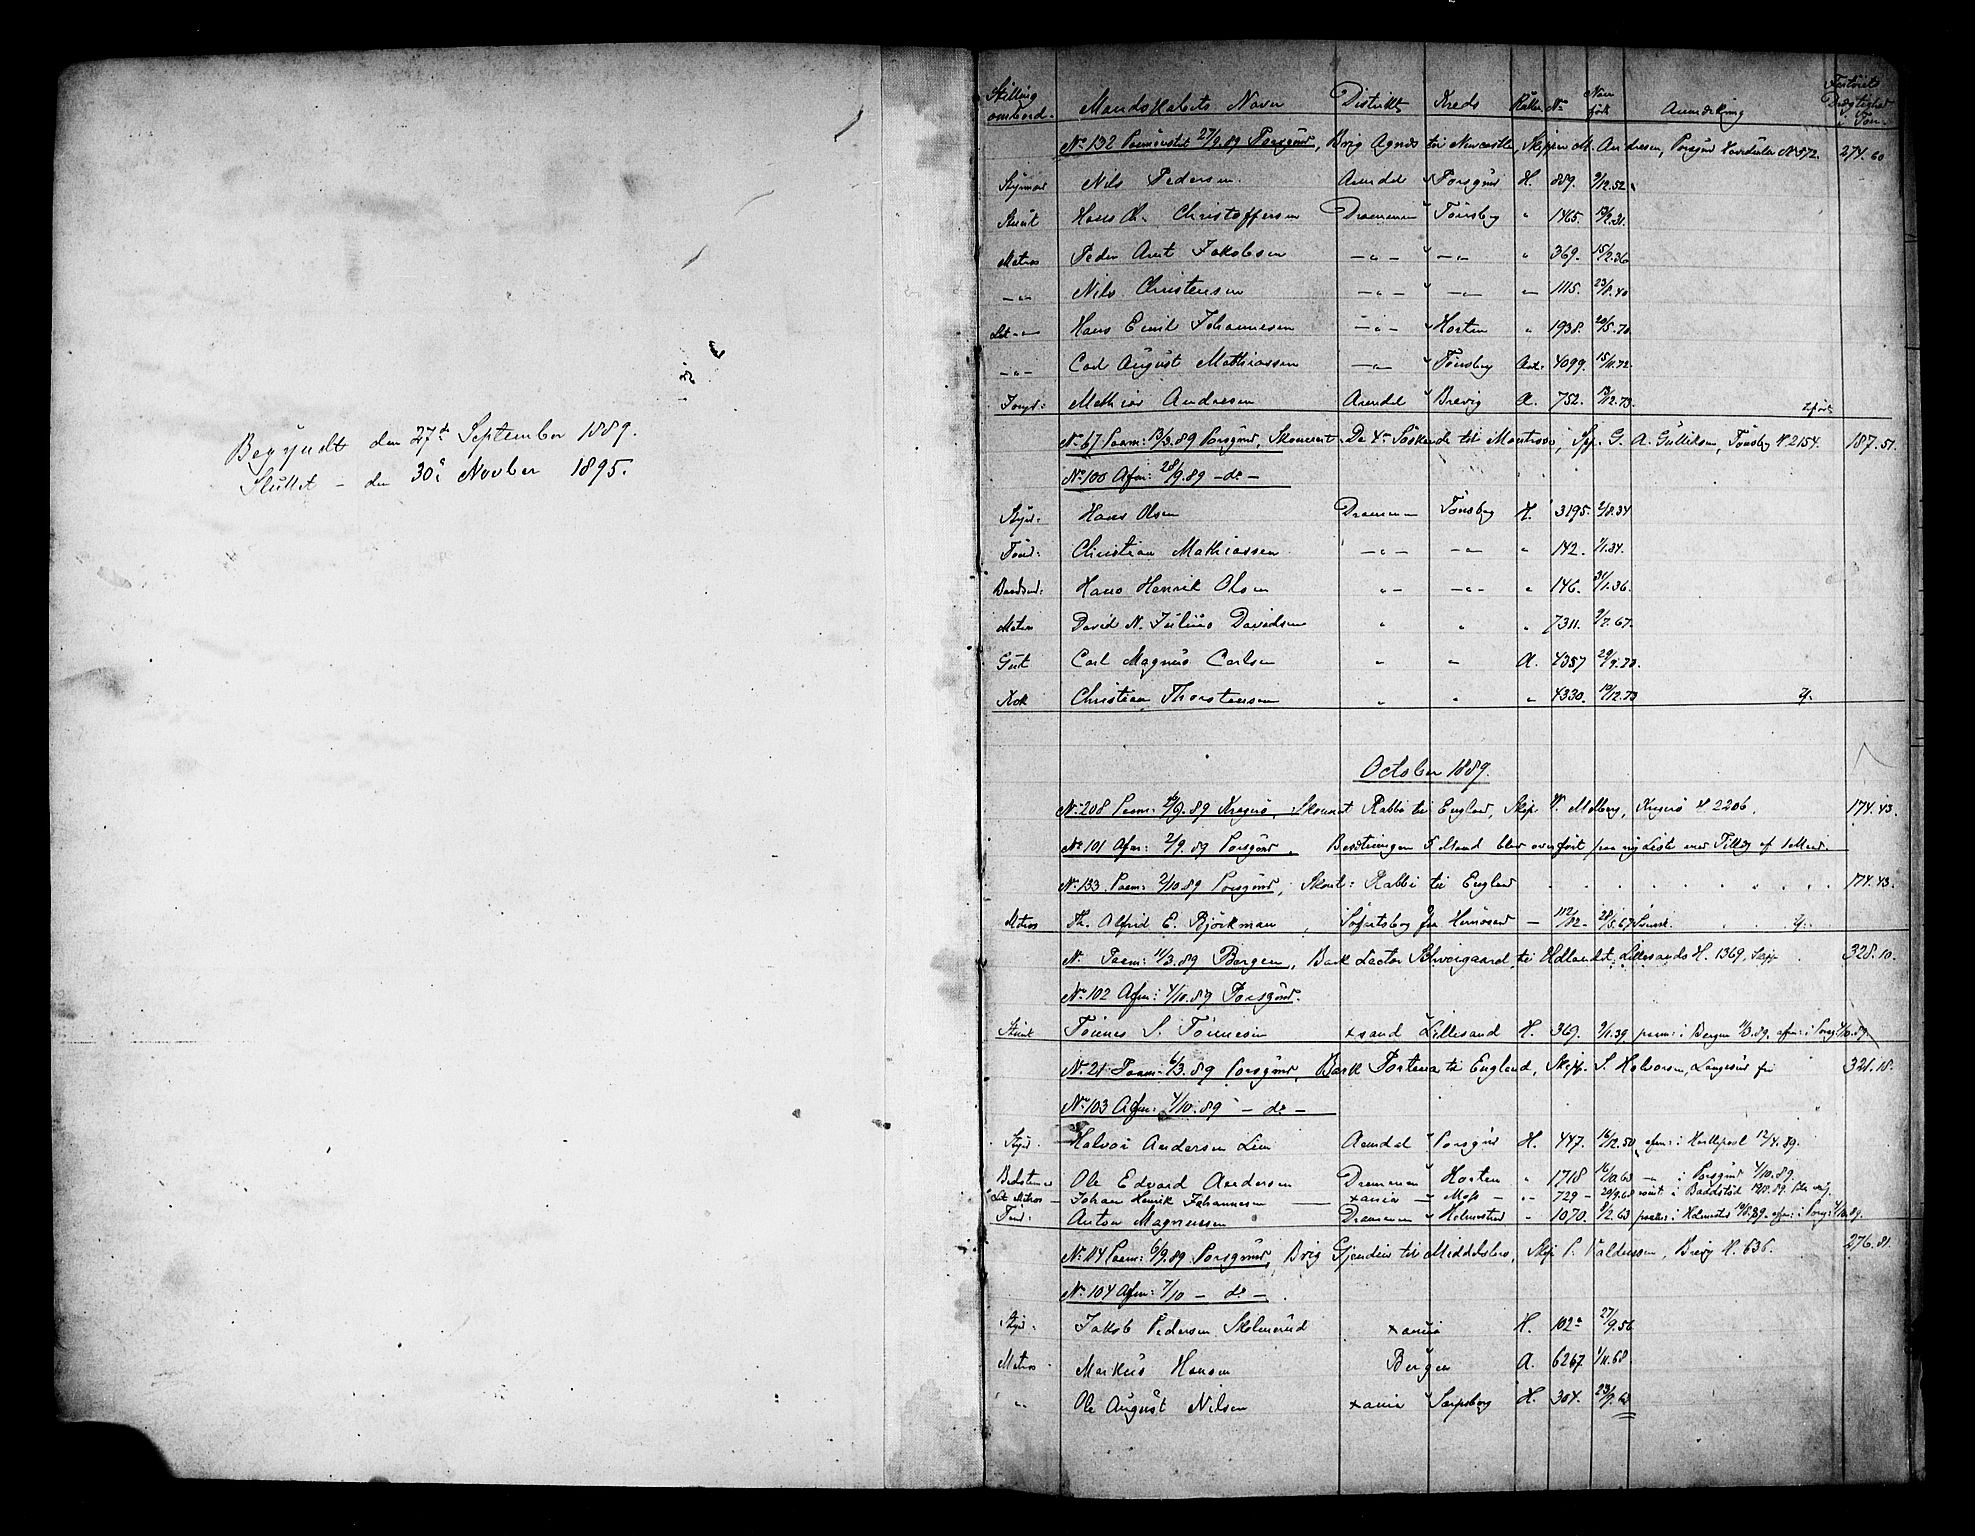 Begyndt den 27de September 1889.
Sluttet - den 30te Novber 1895.
Stilling ombord. Mandskabets Navn Distrikt Kreds Rulle No Naar født Anmerkning Fartøiets Drægtighed i Ton.
No 132 Paamønstret 27/9.89 Porsgrund, Brig Agnes til Newcastle, Skipper M. Andresen, Porsgrund No 572. 274.60
Styrmand Nils Pedersen Arendal Porsgrund H. 889. 9/12.52
Stuert Hans Chr. Christoffersen Drammen Tønsberg " 1465.
Matros Peder Arnt Jakobsen -"- -"- " 369. 15/2.36
-"- Nils Christensen -"- -"- " 1115. 23/8.40
Let -"- Hans Emil Johannesen -"- Horten " 1938. 20/5.70
-"- Carl August Mathiassen -"- Tønsberg 4099. 15/11.72
Jongm: Mathias Andresen Arendal Brevig A. 752. 12.73.
No 67 Paam: 13/3.89 Porsgrund, Skonnert De 4re Søskende til Montrose, Sk. G. A. Gulliksen, Tønsberg H. 2154. 187.51
No 100 Afm: 28/9.89 - do -
Styrm: Hans Olsen Drammen Tønsberg H. 3195. 2/8.34
Tømd: Christian Mathiassen -"- -"- " 142. 1/1.34.
Baadsmd: Hans Henrik Olsen "- -"- " 146. 31/1.36.
Matros David N. Julius Davidsen " " " 7311. 9/7.67.
Carl Magnus Carlsen " " A. 4357 29/9.73.
Kok Christian Thorstensen " " " 4330. 19/12.73
October 1889.
No 208 Paam: 89 Kragerø, Skonnert Rabbi til England, Skip. Melberg, Kragerø H. 2206. 174.43.
No 101 Afm: 2/9.89 Porsgrund. Besætningen 5 Mand blev overført paa ny Liste med Tillæg af 1 Mand.
No 133 Paam: 2/10.89 Porsgrund, Skonl: Rabbi til England 174.43.
Matros Th. Alfrid E. Bjørkman fra Hernøsand - 112/82 - 28/5.67 Svensk.
No Paam: 11/3.89 Bergen, Bark Lector Schweigaard, til Udlandet, Lillesands H. 1369, Skipp 328.10.
No 102 Afm: 4/10.89 Porsgrund.
Stuert Tønnes S. Tønnesen Xsand Lillesand H. 369. 9/1.39 paam: i Bergen 11/3.89, afm: i Porsg: 4/10.89.
No 21 Paam: 6/3.89 Porsgrund, Bark Fortuna til England, Skip. S. Halvorsen, Langesund 321.18.
No 103 Afm: 4/10.89 - do -
Styrm. Halvor Andersen Lien Arendal Porsgrund H. 447. 16/12.50 afm: i Hartlepool 12/4.89.
Ole Edvard Andersen Drammen Horten " 1718 16/10.63 -"- i Porsgrund 4/10.89.
Let Matros - Johan Henrik Johannesen Xania - Moss - " - 729 - 20/9.68
Tømd: Anton Magnussen Drammen Holmestrand " 1070. 8/2.63 paam: i Holmestd afm: i Porsg: 4/10.89.
No 114 Paam: 6/9.89 Porsgrund, Brig Gjendin til Middelsbro, Skip P. Valdersen, Brevig H. 636. 276.81.
No 104 Afm: 7/10 - do -
Styrm. Jakob Pedersen Skilmerud Xania H. 102a 27/9.56
Matros Markus Hansen Bergen A. 6267 1/11.68.
"- Ole August Nilsen Xania Sarpsborg H. 304. 23/9.63